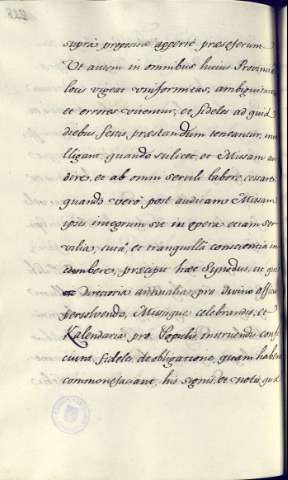 supra proposita apperte præseferunt
Ut autem in omnibus huius Provinciæ
locis vigeat vniformitas, ambiguitates
et errores vitentur, et fideles ad quid
diebus festis præstandum teneantur, in
lligant, quando scilicet, et Missam au
dire, et ab omni servili labore cessare
quando verò post auditam Missam
ipsis integrum sit in opera etiam ser
valia, tutâ, et tranquillâ conscientia in
cumbere, præcipit hæc Synodus, ut qui
Directoria annualia pro divino officio
persolvendo, Missisque celebrandis, et
Kalendaria pro Populis instruendis confi
ciunt fideles, de obligatione, quam habent
commonefaciant, his signis, et notis, quæ